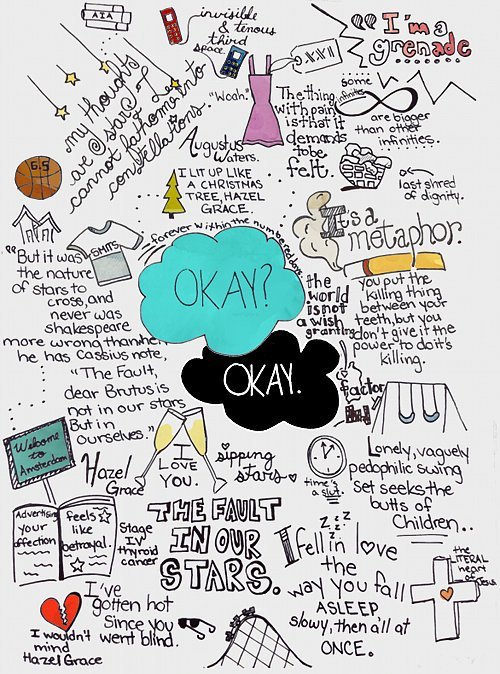 AIA
invisible
& tenous
third
space
"I'm a
grenade
my thoughts
are stars I
cannot fathom into
constellations.
"Woah."
The thing
with pain
is that it
demands
to be
felt.
some
infinities
are bigger
than other
infinities.
Augustus
Waters.
6.5
I LIT UP LIKE
A CHRISTMAS
TREE, HAZEL
GRACE.
last shred
of dignity.
forever within the numbered days.
SMITS
It's a
metaphor.
"But it was
the nature
of stars to
cross, and
never was
shakespeare
more wrong than when
he has Cassius note,
"The Fault,
dear Brutus is
not in our stars
But in
ourselves."
OKAY?
OKAY.
the
world
is not
a wish
granting
factory
you put the
killing thing
between your
teeth, but you
don't give it the
power to do its
killing.
Welcome
to
Amsterdam
Hazel
Grace
I
LOVE
YOU.
sipping
stars
time's
a slut.
Lonely, vaguely
pedophilic swing
set seeks the
butts of
Children..
Advertising
your
affection
feels
like
betrayal.
Stage
IV
thyroid
cancer
THE FAULT
IN OUR
STARS.
z z z z
I fell in love
the
way you fall
ASLEEP
slowy, then all at
ONCE.
the
LITERAL
heart
of
Jesus
I wouldn't
mind
Hazel Grace
I've
gotten hot
Since you
went blind.